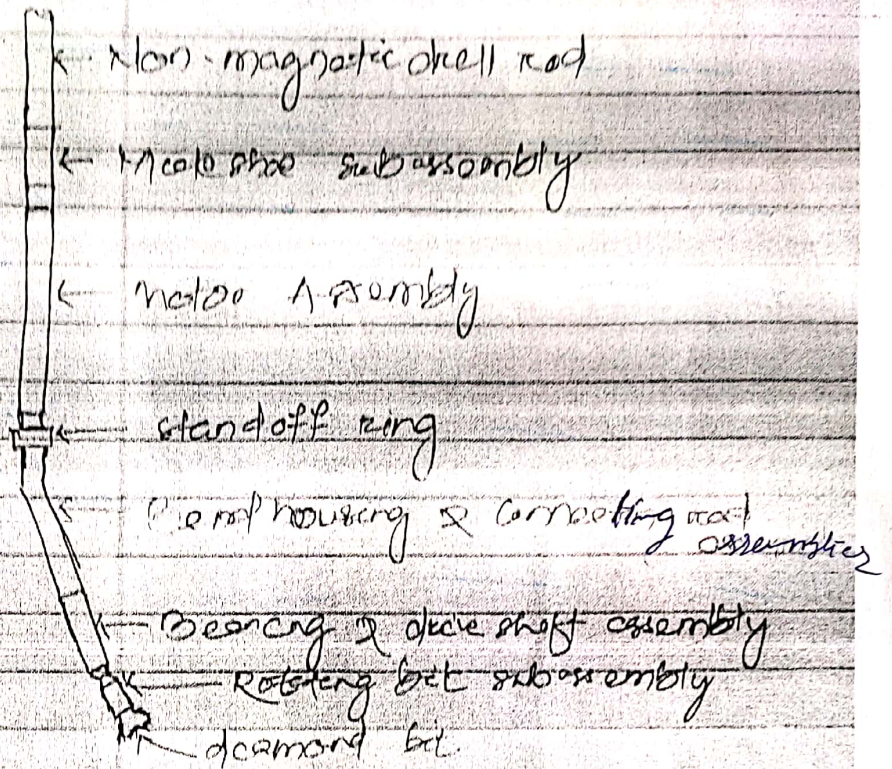 Non-magnetic drill rod
Mule shoe subassembly
Motor Assembly
standoff ring
Bent housing & Connecting rod
assemblies
Bearing & drive shaft assembly
Rotating bit subassembly
diamond bit